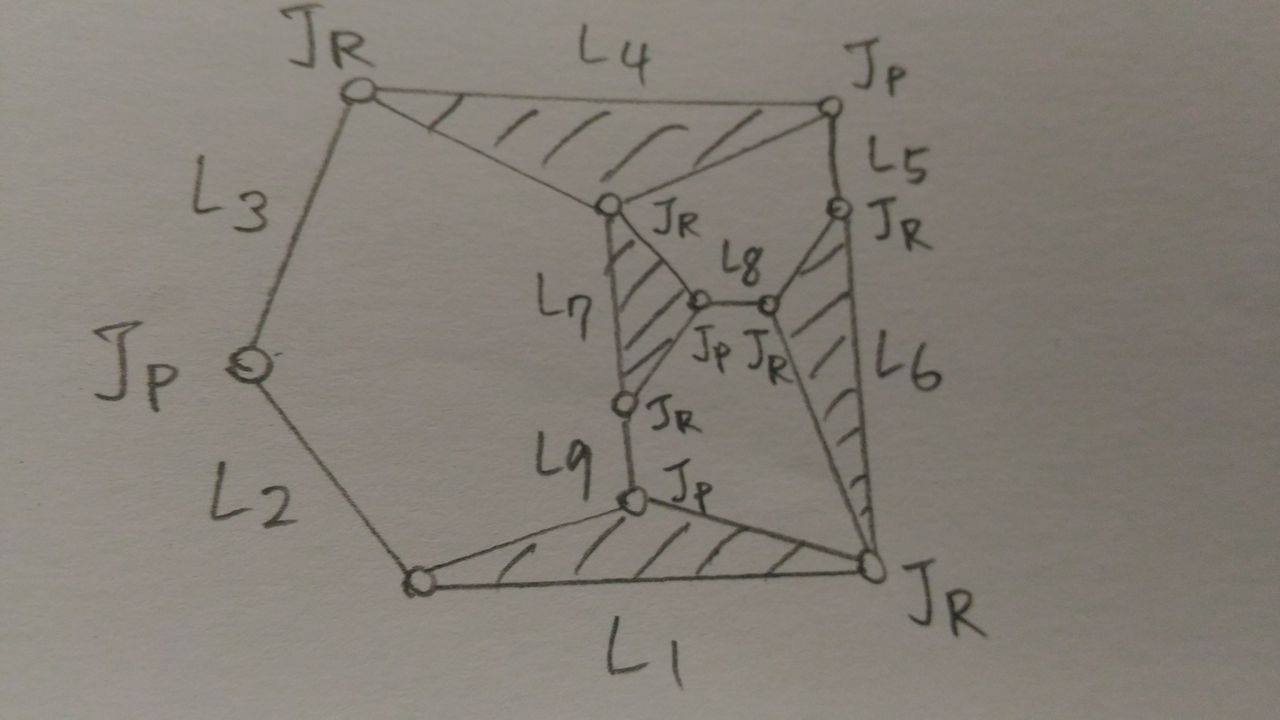 JR
L4
JP
L3
L5
JR
JR
L8
L7
JP
JP
JR
L6
JR
L9
JP
L2
JR
L1